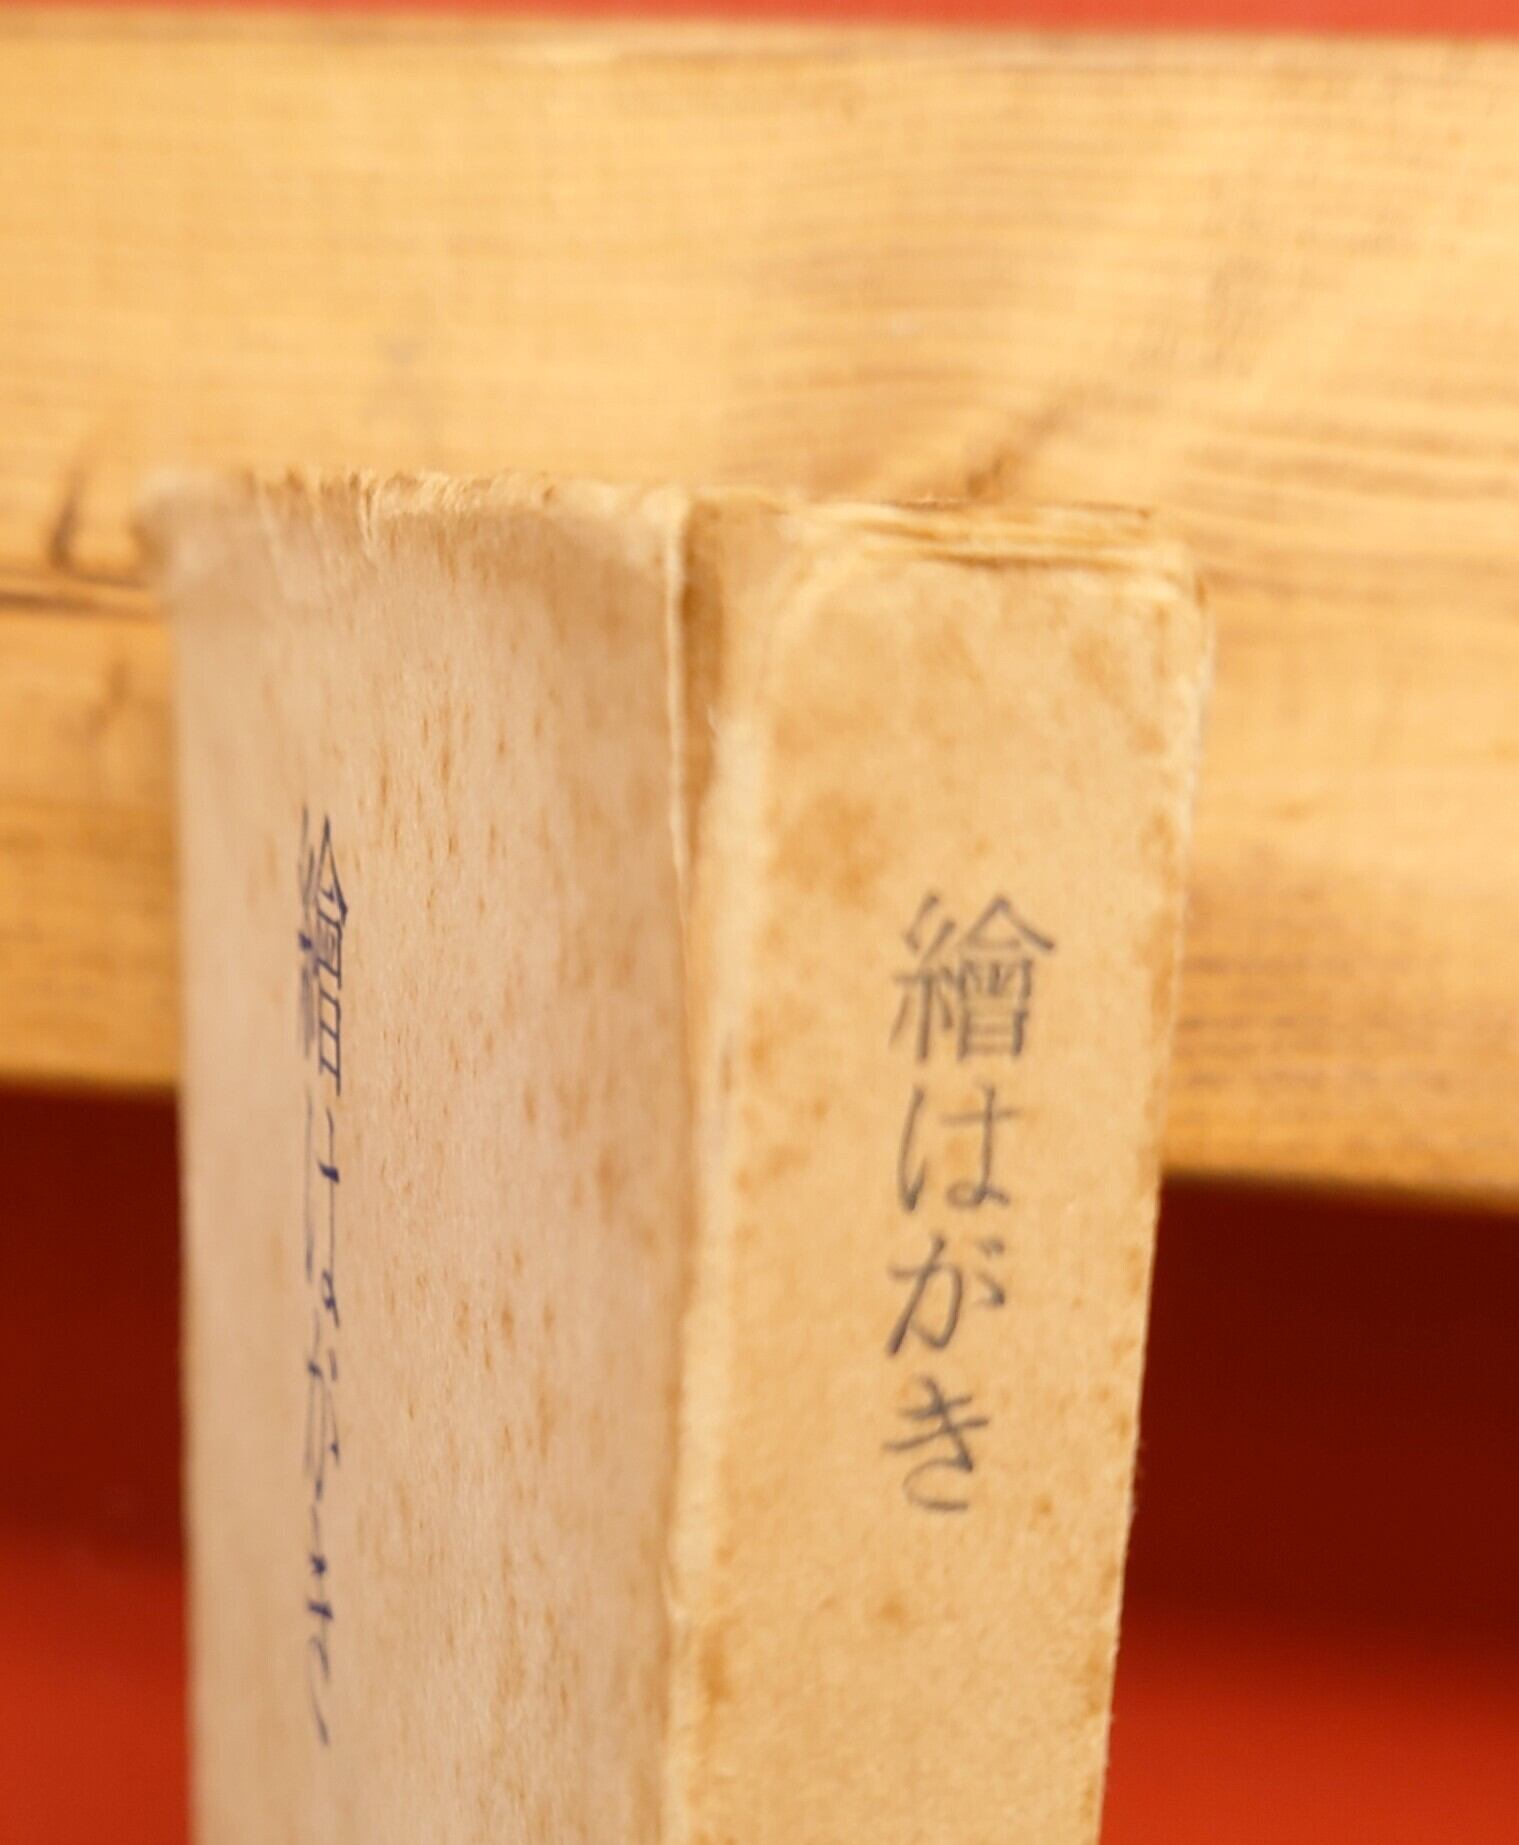 繪はがき
繪はがき